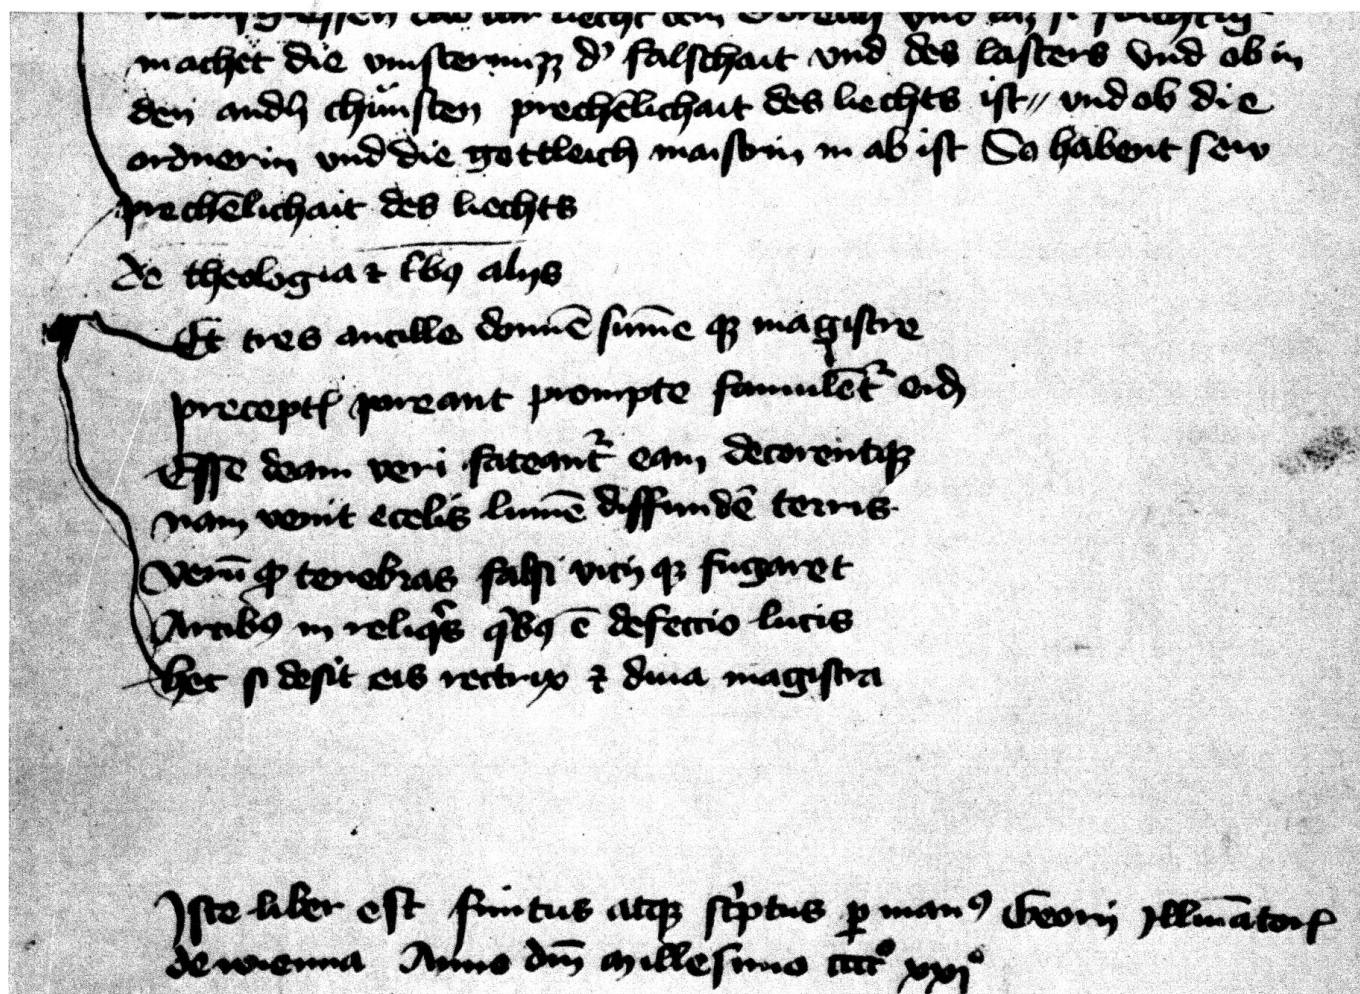 machet die vinsternuzz d' falschait vnd des lasters Vnd ob in
den andn chünsten prechēlichait des liechts ist // vnd ob die
ordnerin vnd die gottleich maistrin in ab ist So habent sew
prechēlichait des liechts
De theologia et tribus alijs
Et tres ancille domīe sūme qz magistre
precept pareant prompte famulēt eid
Esse deam veri fateant eam decorentqz
nam venit e celis lumē diffundē terris
Verū qz tenebras falsi vicij qz fugaret
Artibus in reliqis qibus ē defectio lucis
Hec si desit eis rectrix et diua magistra
Iste liber est finitus atqz scptus p manus Georij Illmātor
de wienna Anno dm̄ Millesimo cccc° xxj°